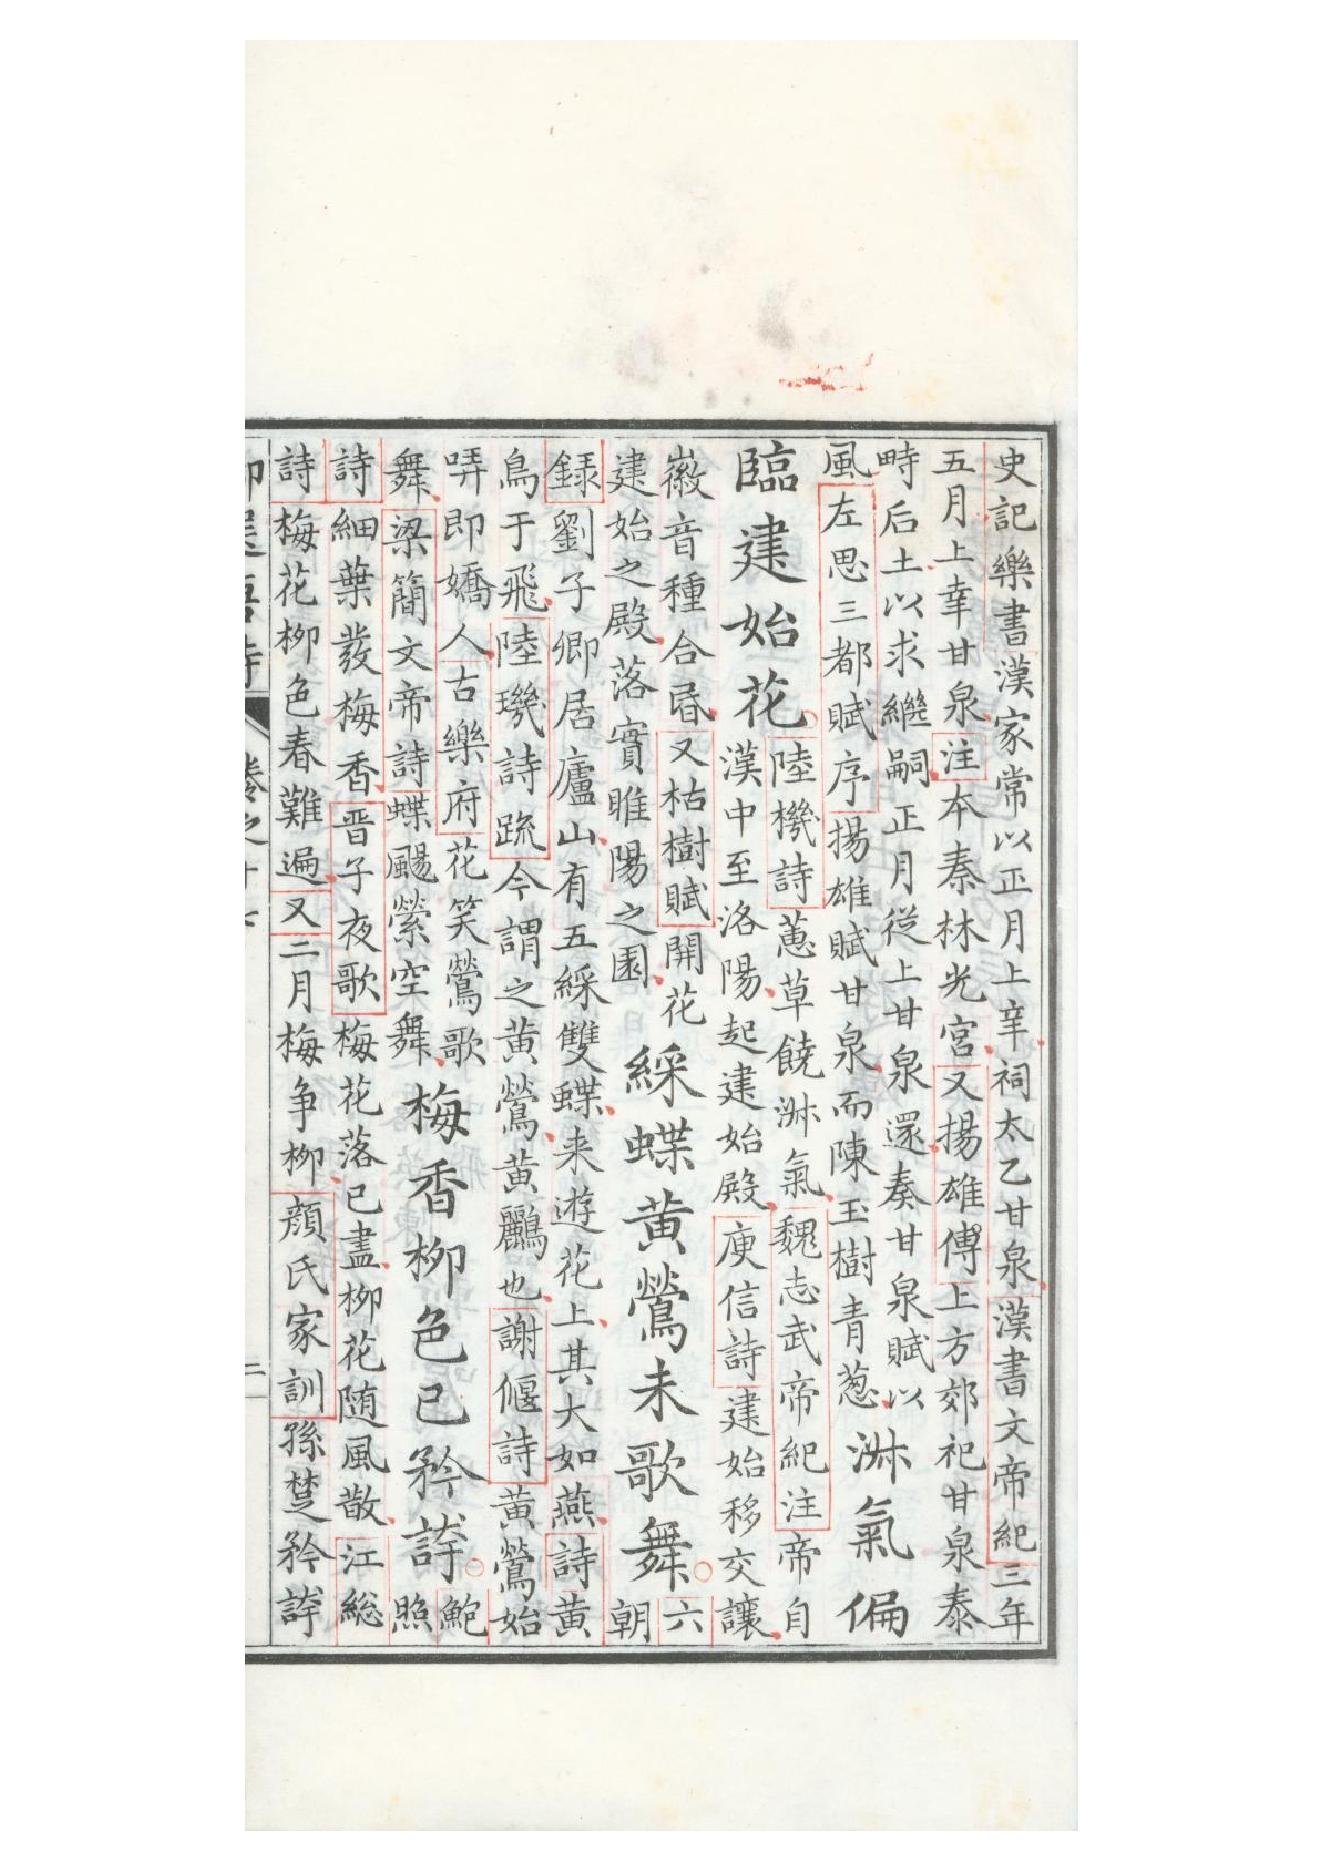 史記樂書漢家常以正月上辛祠太乙甘泉漢書文帝紀三年
五月上幸甘泉注本秦林光宮又揚雄傅上方郊祀甘泉泰
畤后土以求繼嗣正月從上甘泉還奏甘泉賦以
風左思三都賦序揚雄賦甘泉而陳玉樹青葱
淑氣偏
臨建始花
陸機詩蕙草饒淑氣魏志武帝紀注帝自
漢中至洛陽起建始殿庾信詩建始移交讓
徽音種合昏又枯樹賦開花
建始之殿落實睢陽之園
綵蝶黄鶯未歌舞
六
朝
録劉子卿居廬山有五綵雙蝶来遊花上其大如燕詩黄
鳥于飛陸璣詩疏今謂之黄鶯黄鸝也謝偃詩黄鶯始
哢即嬌人古樂府花笑鶯歌
舞梁簡文帝詩蝶颺縈空舞
梅香柳色已矜誇
鮑
照
詩細葉發梅香晋子夜歌梅花落已盡柳花随風散江総
詩梅花柳色春難遍又二月梅争柳顔氏家訓孫楚矜誇